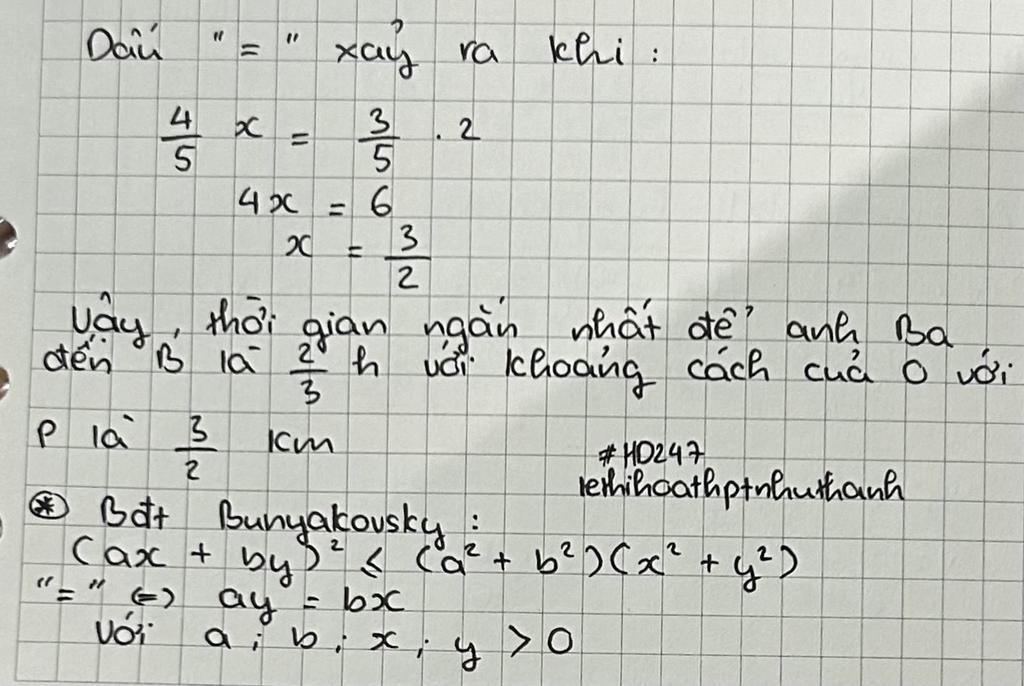 Dấu "=" xảy ra khi :
4/5 x = 3/5 . 2
4x = 6
x = 3/2
Vậy, thời gian ngắn nhất để anh Ba
đến B là 2/3 h với khoảng cách của O với
P là 3/2 km
#HD247
lethihoathptnhuthanh
* Bđt Bunyakovsky :
(ax + by)² ≤ (a² + b²)(x² + y²)
"=" ⇔ ay = bx
Với a ; b ; x ; y > 0